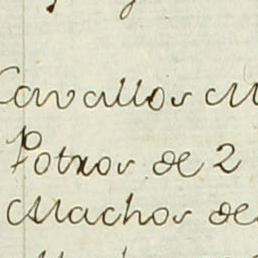 Cavallos
Potros de 2
Machos de